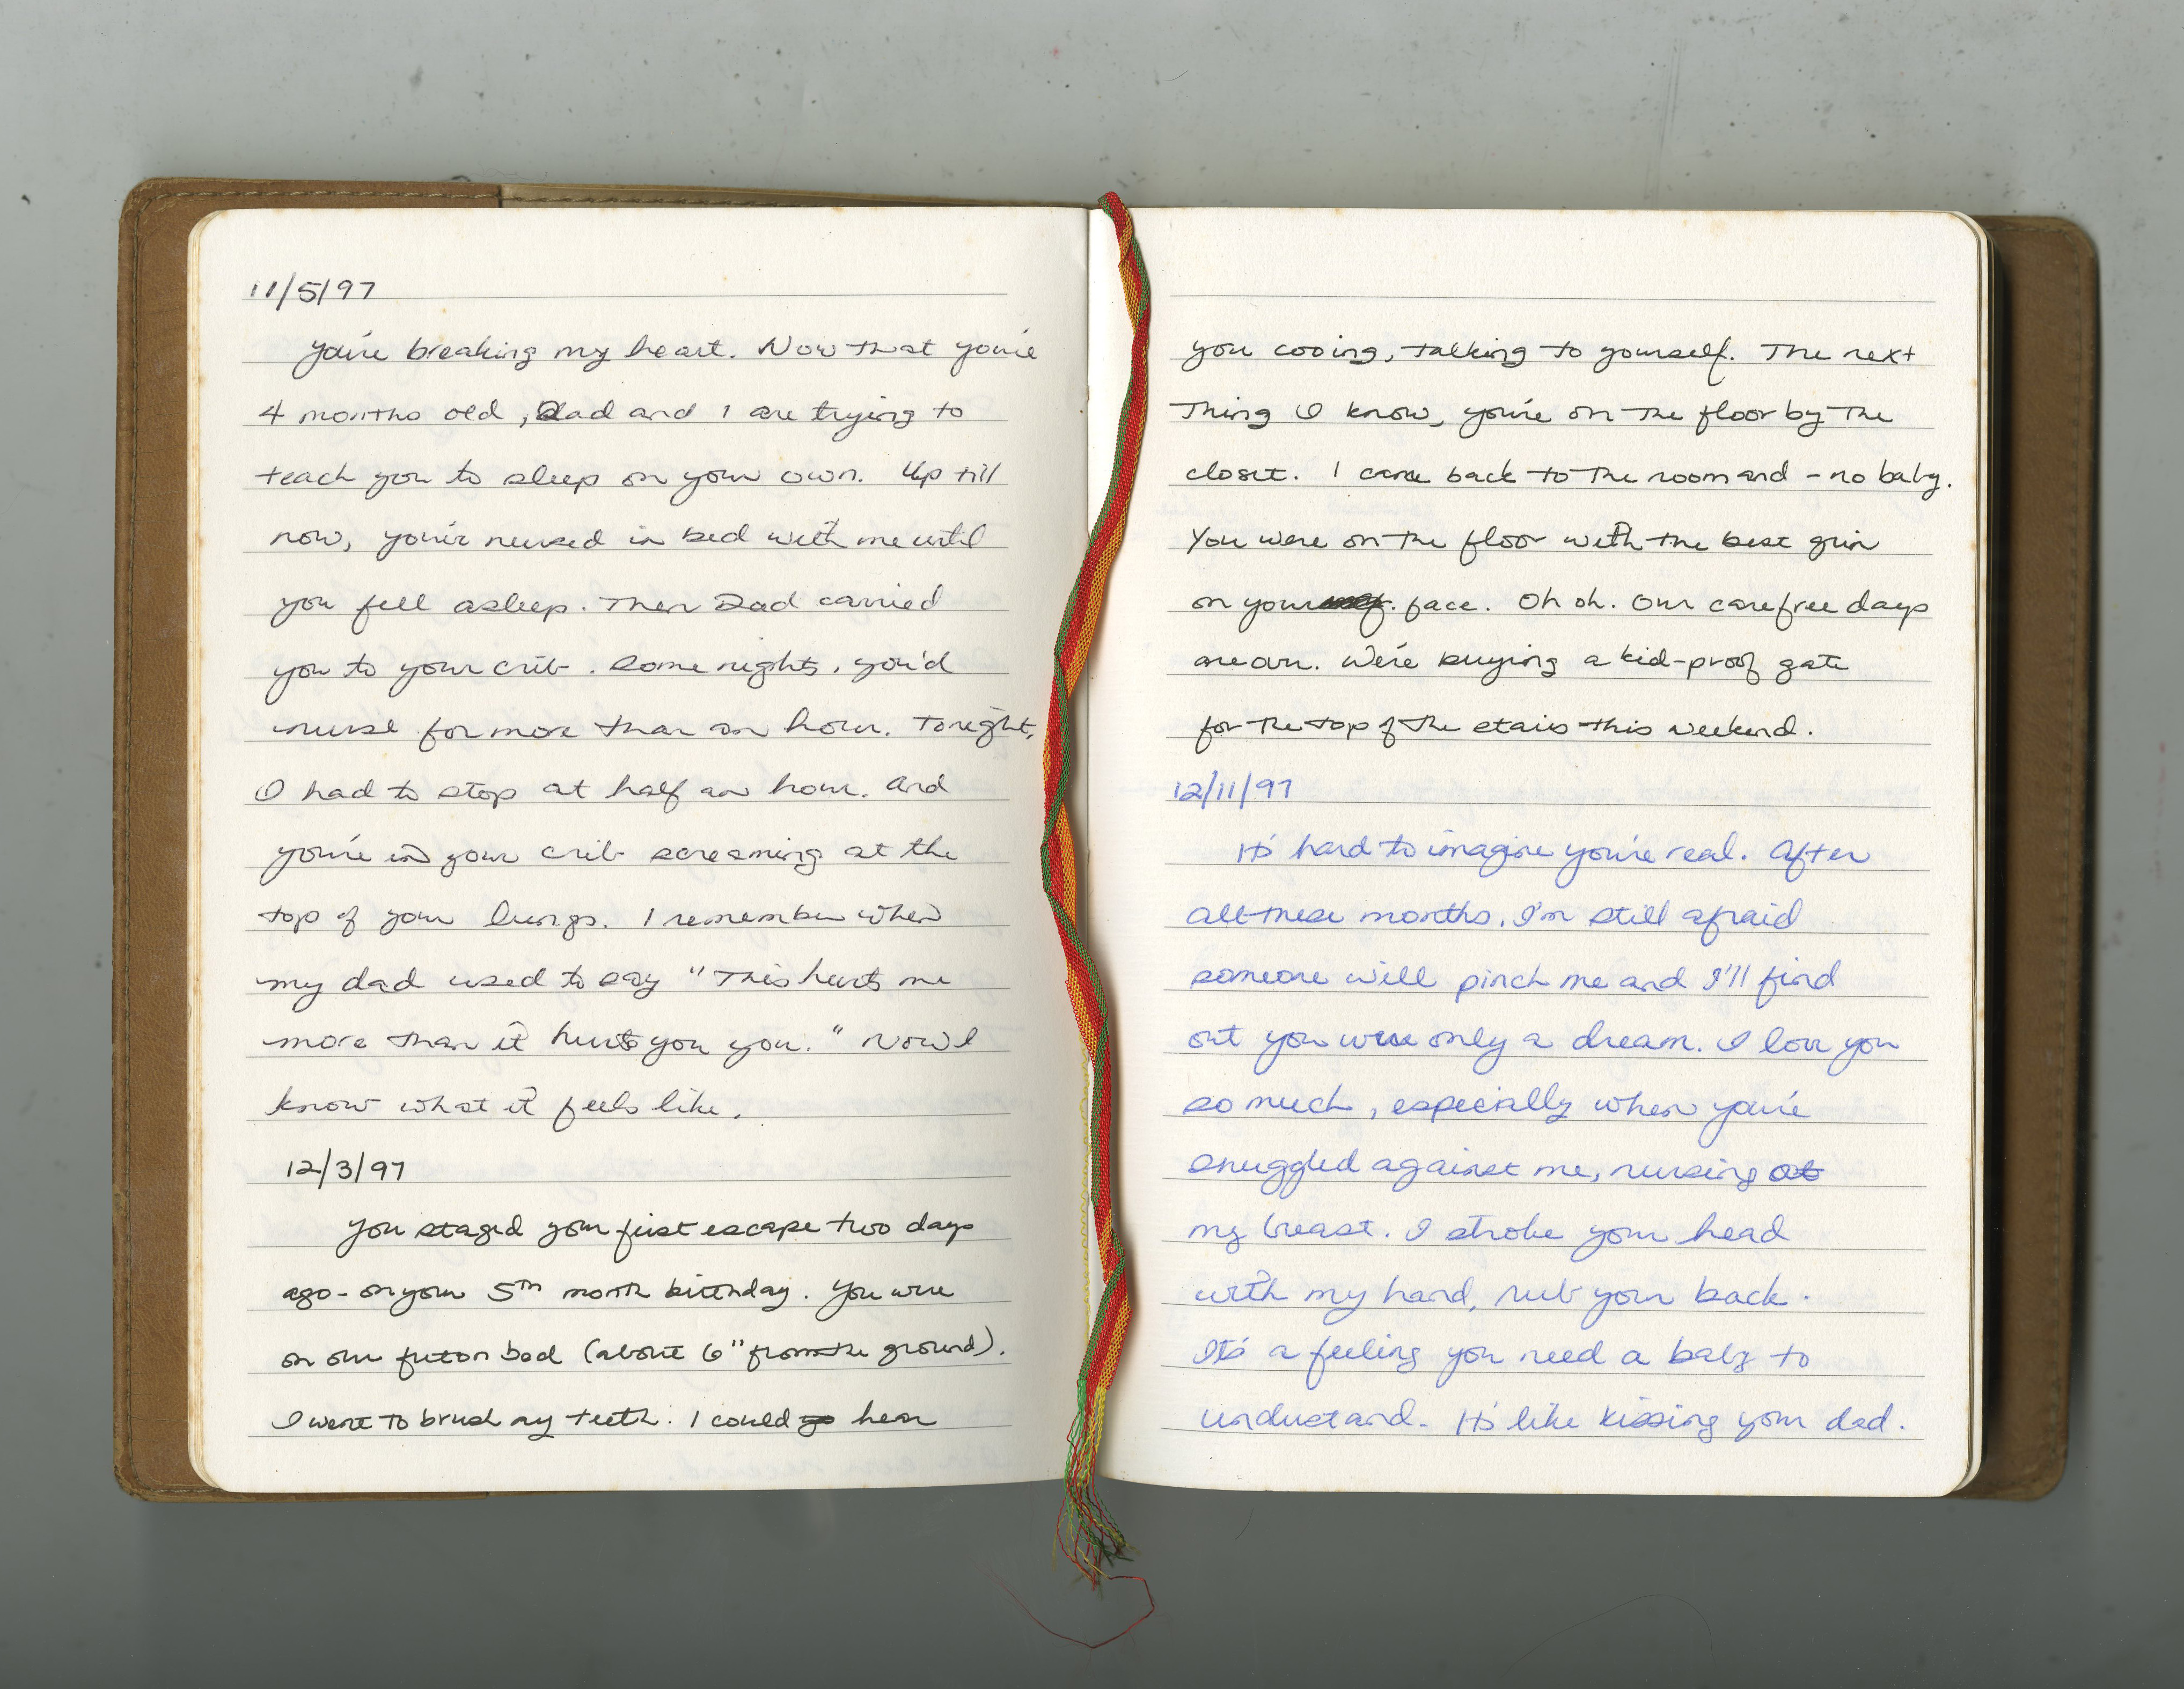 11/5/97
You're breaking my heart. Now that you're
4 months old, Dad and I are trying to
teach you to sleep on your own. Up till
now, you've nursed in bed with me until
you fell asleep. Then Dad carried
you to your crib. Some nights, you'd
nurse for more than an hour. Tonight,
I had to stop at half an hour. And
you're in your crib screaming at the
top of your lungs. I remember when
my dad used to say "This hurts me
more than it hurts you you." Now I
know what it feels like.
12/3/97
You staged your first escape two days
ago - on your 5th month birthday. You were
on our futon bed (about 6" from the ground).
I went to brush my teeth. I could go hear
you cooing, talking to yourself. The next
thing I know, you're on the floor by the
closet. I came back to the room and - no baby.
You were on the floor with the best grin
on your face. Oh oh. Our carefree days
are over. We're buying a kid-proof gate
for the top of the stairs this weekend.
12/11/97
It's hard to imagine you're real. After
all these months, I'm still afraid
someone will pinch me and I'll find
out you were only a dream. I love you
so much, especially when you're
snuggled against me, nursing at
my breast. I stroke your head
with my hand, rub your back.
It's a feeling you need a baby to
understand. It's like kissing your dad.